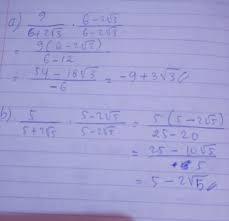 a) 9/(6+2√3) · (6-2√3)/(6-2√3)
= 9(6-2√3)/(6-12)
= (54-18√3)/(-6) = -9+3√3
b) 5/(5+2√5) · (5-2√5)/(5-2√5) = 5(5-2√5)/(25-20)
= (25-10√5)/5
= 5-2√5